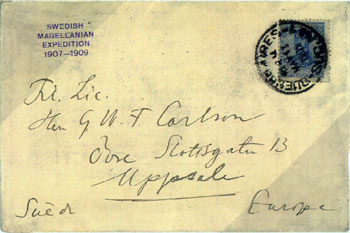 SWEDISH
MAGELLANIAN
EXPEDITION
1907-1909
BUENOS AIRES
Fil. Lic.
Herr G W F Carlson
Övre Slottsgatan 13
Uppsala
Suède Europa